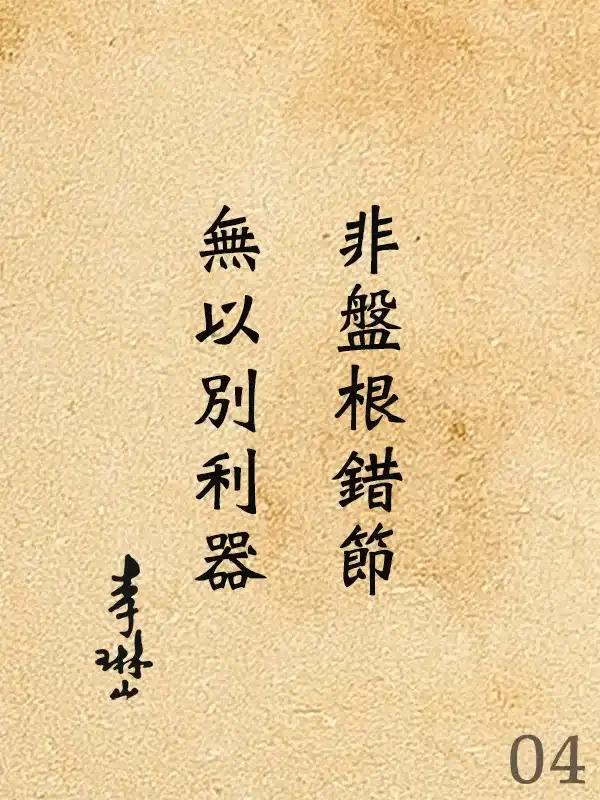 非盤根錯節
無以別利器
李琳山
04